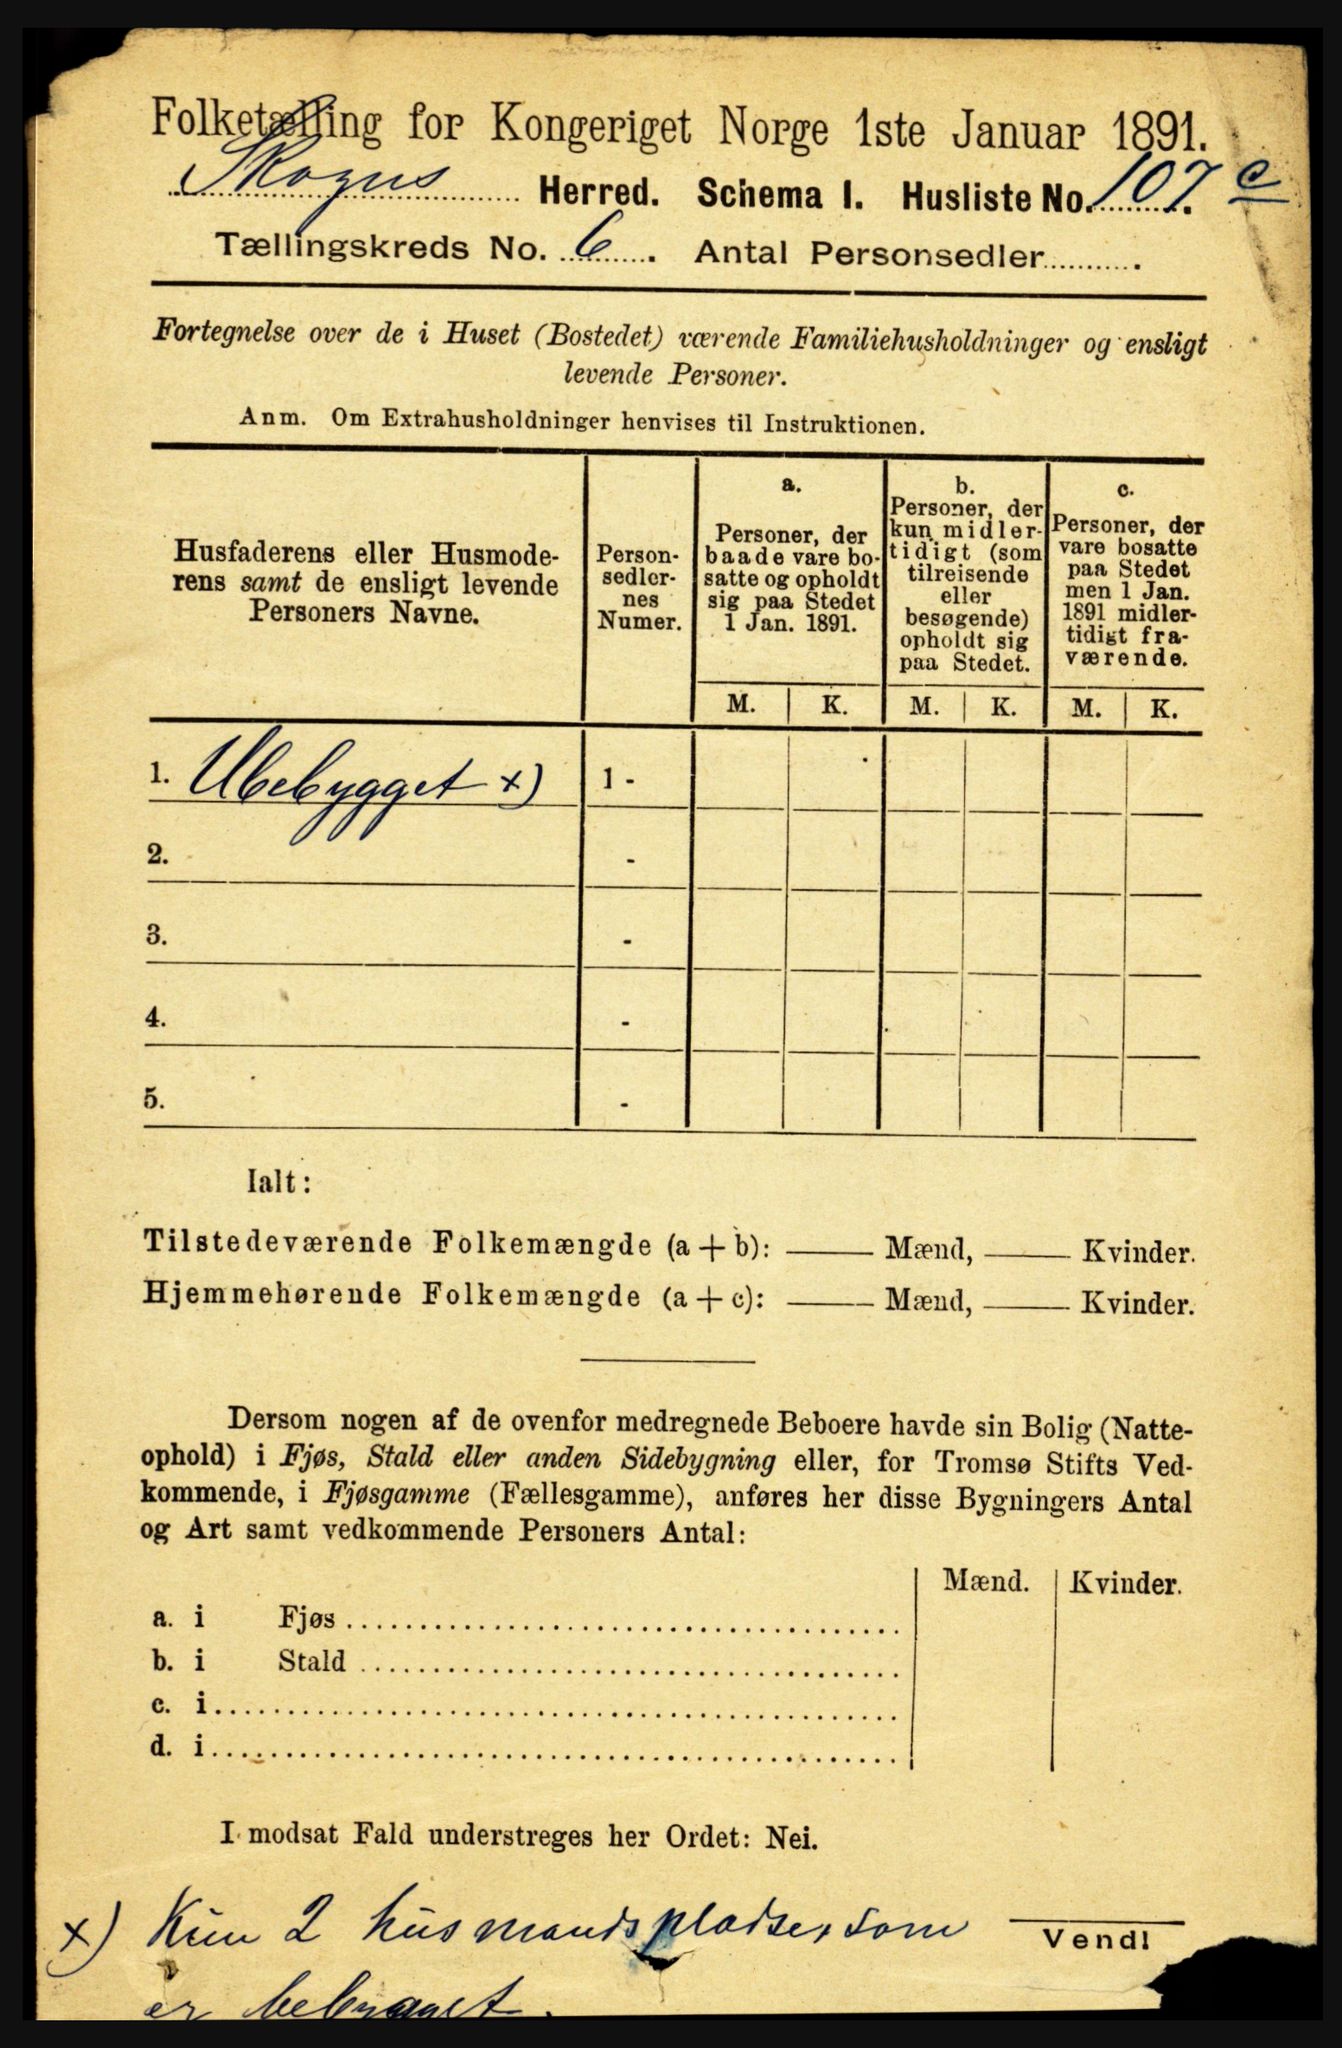 Folketælling for Kongeriget Norge 1ste Januar 1891.
Skogns Herred. Schema I. Husliste No. 107 c
Tællingskreds No. 6. Antal Personsedler.
Fortegnelse over de i Huset (Bostedet) værende Familiehusholdninger og ensligt
levende Personer.
Anm. Om Extrahusholdninger henvises til Instruktionen.
Husfaderens eller Husmode-
rens samt de ensligt levende
Personers Navne.
Person-
sedler-
nes
Numer.
a.
Personer, der
baade vare bo-
satte og opholdt
sig paa Stedet
1 Jan. 1891.
b.
Personer, der
kun midler-
tidigt (som
tilreisende
eller
besøgende)
opholdt sig
paa Stedet.
c.
Personer, der
vare bosatte
paa Stedet
men 1 Jan.
1891 midler-
tidigt fra-
værende.
M. K. M. K. M. K.
1. Ubebygget x) 1 -
2. -
3. -
4. -
5. -
Ialt:
Tilstedeværende Folkemængde (a + b): —— Mænd, —— Kvinder.
Hjemmehørende Folkemængde (a + c): —— Mænd, —— Kvinder.
Dersom nogen af de ovenfor medregnede Beboere havde sin Bolig (Natte-
ophold) i Fjøs, Stald eller anden Sidebygning eller, for Tromsø Stifts Ved-
kommende, i Fjøsgamme (Fællesgamme), anføres her disse Bygningers Antal
og Art samt vedkommende Personers Antal:
Mænd. Kvinder.
a. i Fjøs
b. i Stald
c. i
d. i
I modsat Fald understreges her Ordet: Nei.
x) Kun 2 husmandspladse, som
Vend!
er bebygget.